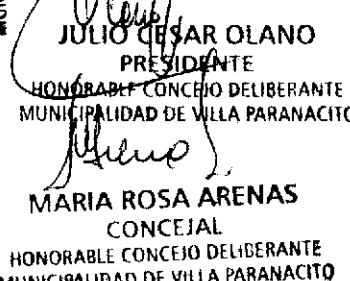 JULIO CESAR OLANO
PRESIDENTE
HONORABLE CONCEJO DELIBERANTE
MUNICIPALIDAD DE VILLA PARANACITO
MARIA ROSA ARENAS
CONCEJAL
HONORABLE CONCEJO DELIBERANTE
MUNICIPALIDAD DE VILLA PARANACITO